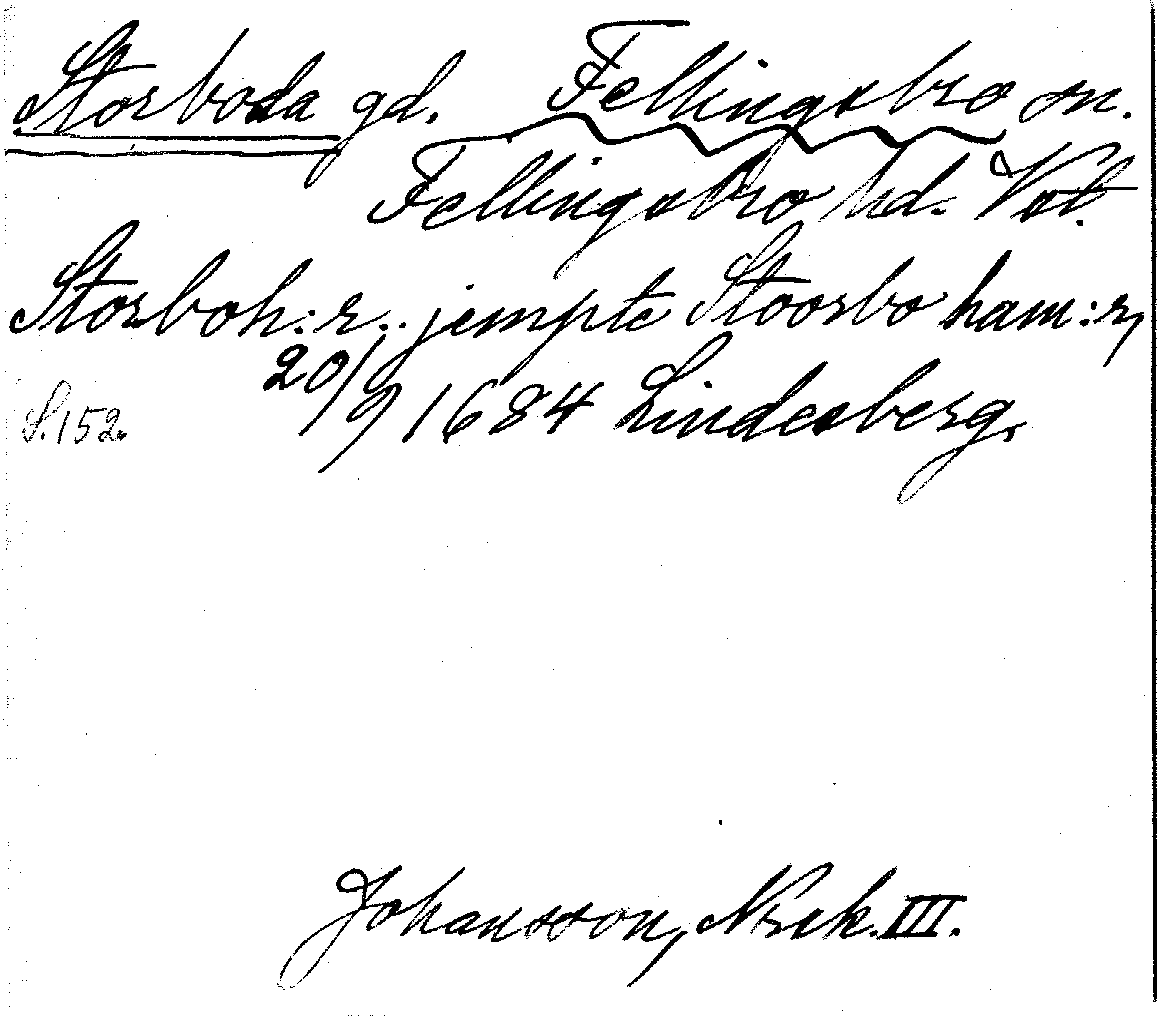 Storboda gd. Fellingsbro sn.
Fellingsbro hd. Vstl.
Storboh:r.. jempte Stoorbo ham:r,
20/9 1684 Lindesberg.
S.152.
Johansson, Nsek. III.